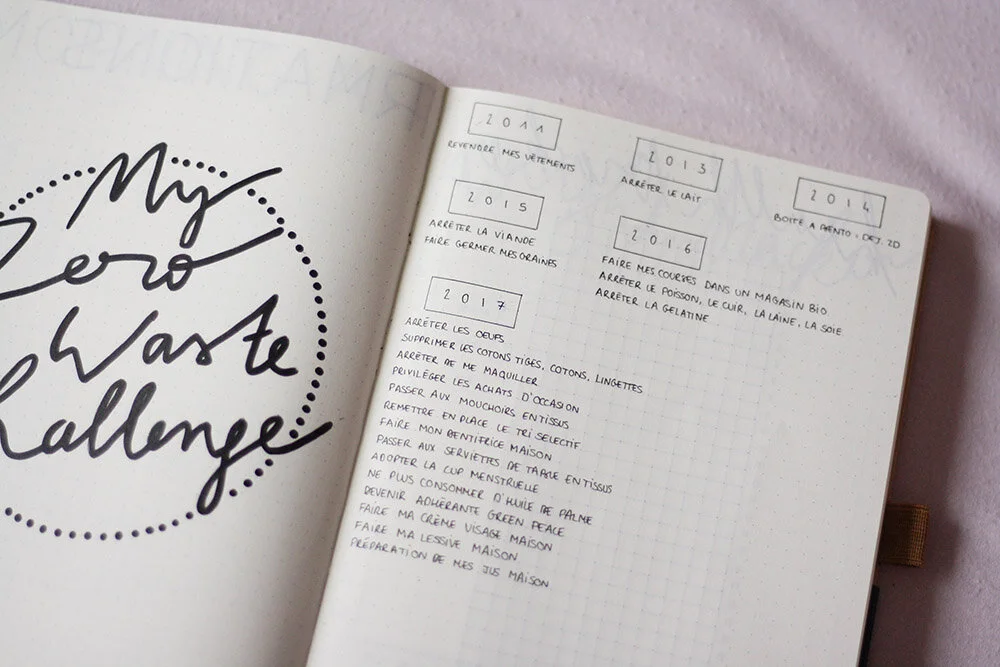 My
Zero
Waste
Challenge
2011
REVENDRE MES VÊTEMENTS
2013
ARRÊTER LE LAIT
2014
BOITE A BENTO - DEJ. ZD
2015
ARRÊTER LA VIANDE
FAIRE GERMER MES GRAINES
2016
FAIRE MES COURSES DANS UN MAGASIN BIO
ARRÊTER LE POISSON, LE CUIR, LA LAINE, LA SOIE
ARRÊTER LA GELATINE
2017
ARRÊTER LES OEUFS
SUPPRIMER LES COTONS TIGES, COTONS, LINGETTES
ARRÊTER DE ME MAQUILLER
PRIVILÉGER LES ACHATS D'OCCASION
PASSER AUX MOUCHOIRS EN TISSUS
REMETTRE EN PLACE LE TRI SELECTIF
FAIRE MON DENTIFRICE MAISON
PASSER AUX SERVIETTES DE TABLE EN TISSUS
ADOPTER LA CUP MENSTRUELLE
NE PLUS CONSOMMER D'HUILE DE PALME
DEVENIR ADHÉRANTE GREEN PEACE
FAIRE MA CRÈME VISAGE MAISON
FAIRE MA LESSIVE MAISON
PRÉPARATION DE MES JUS MAISON